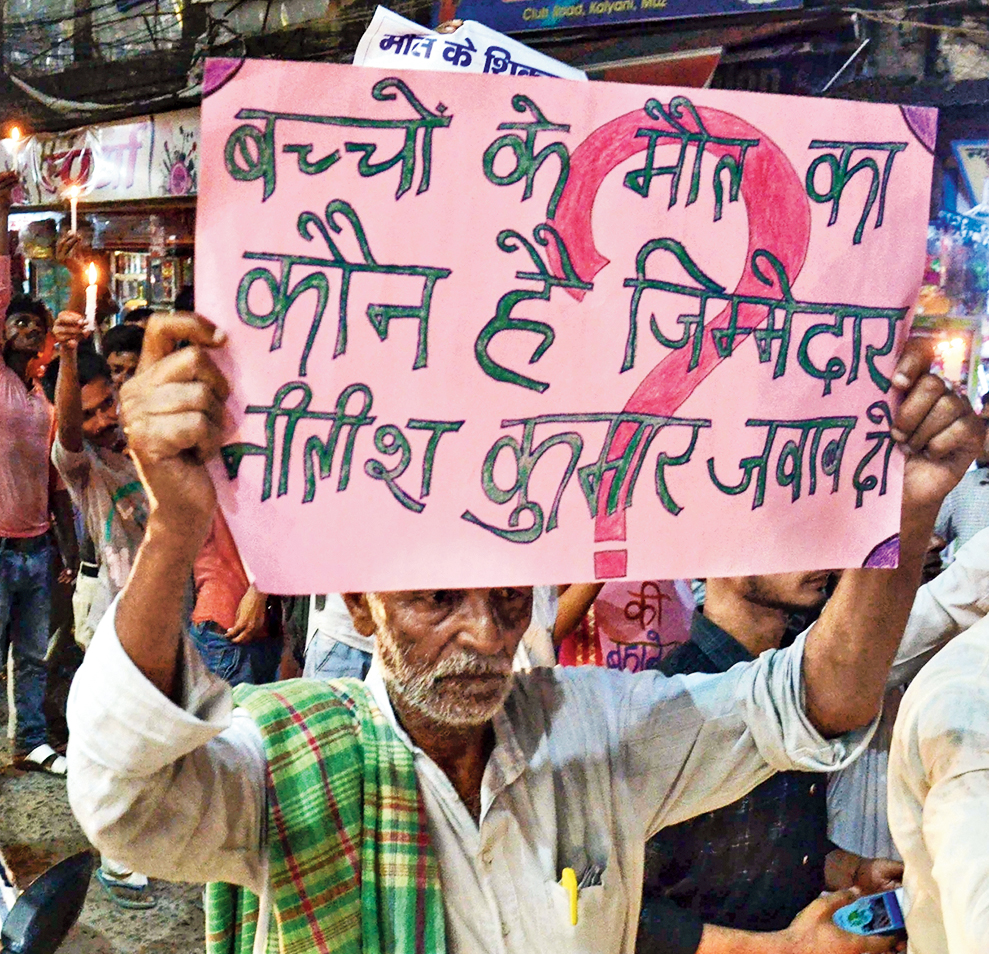 Club Road, Kalyani, Muz
मौत के शिका
बच्चों के मौत का
कौन है जिम्मेदार
नीतीश कुमार जवाब दो
की